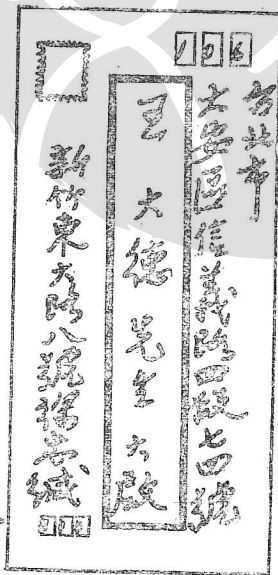 106
台北市
大安區信義路四段七四號
王大德先生大啟
新竹東大路八號楊寄緘